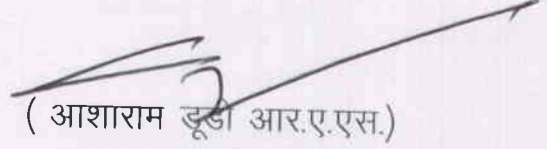 ( आशाराम डूडी आर.ए.एस.)